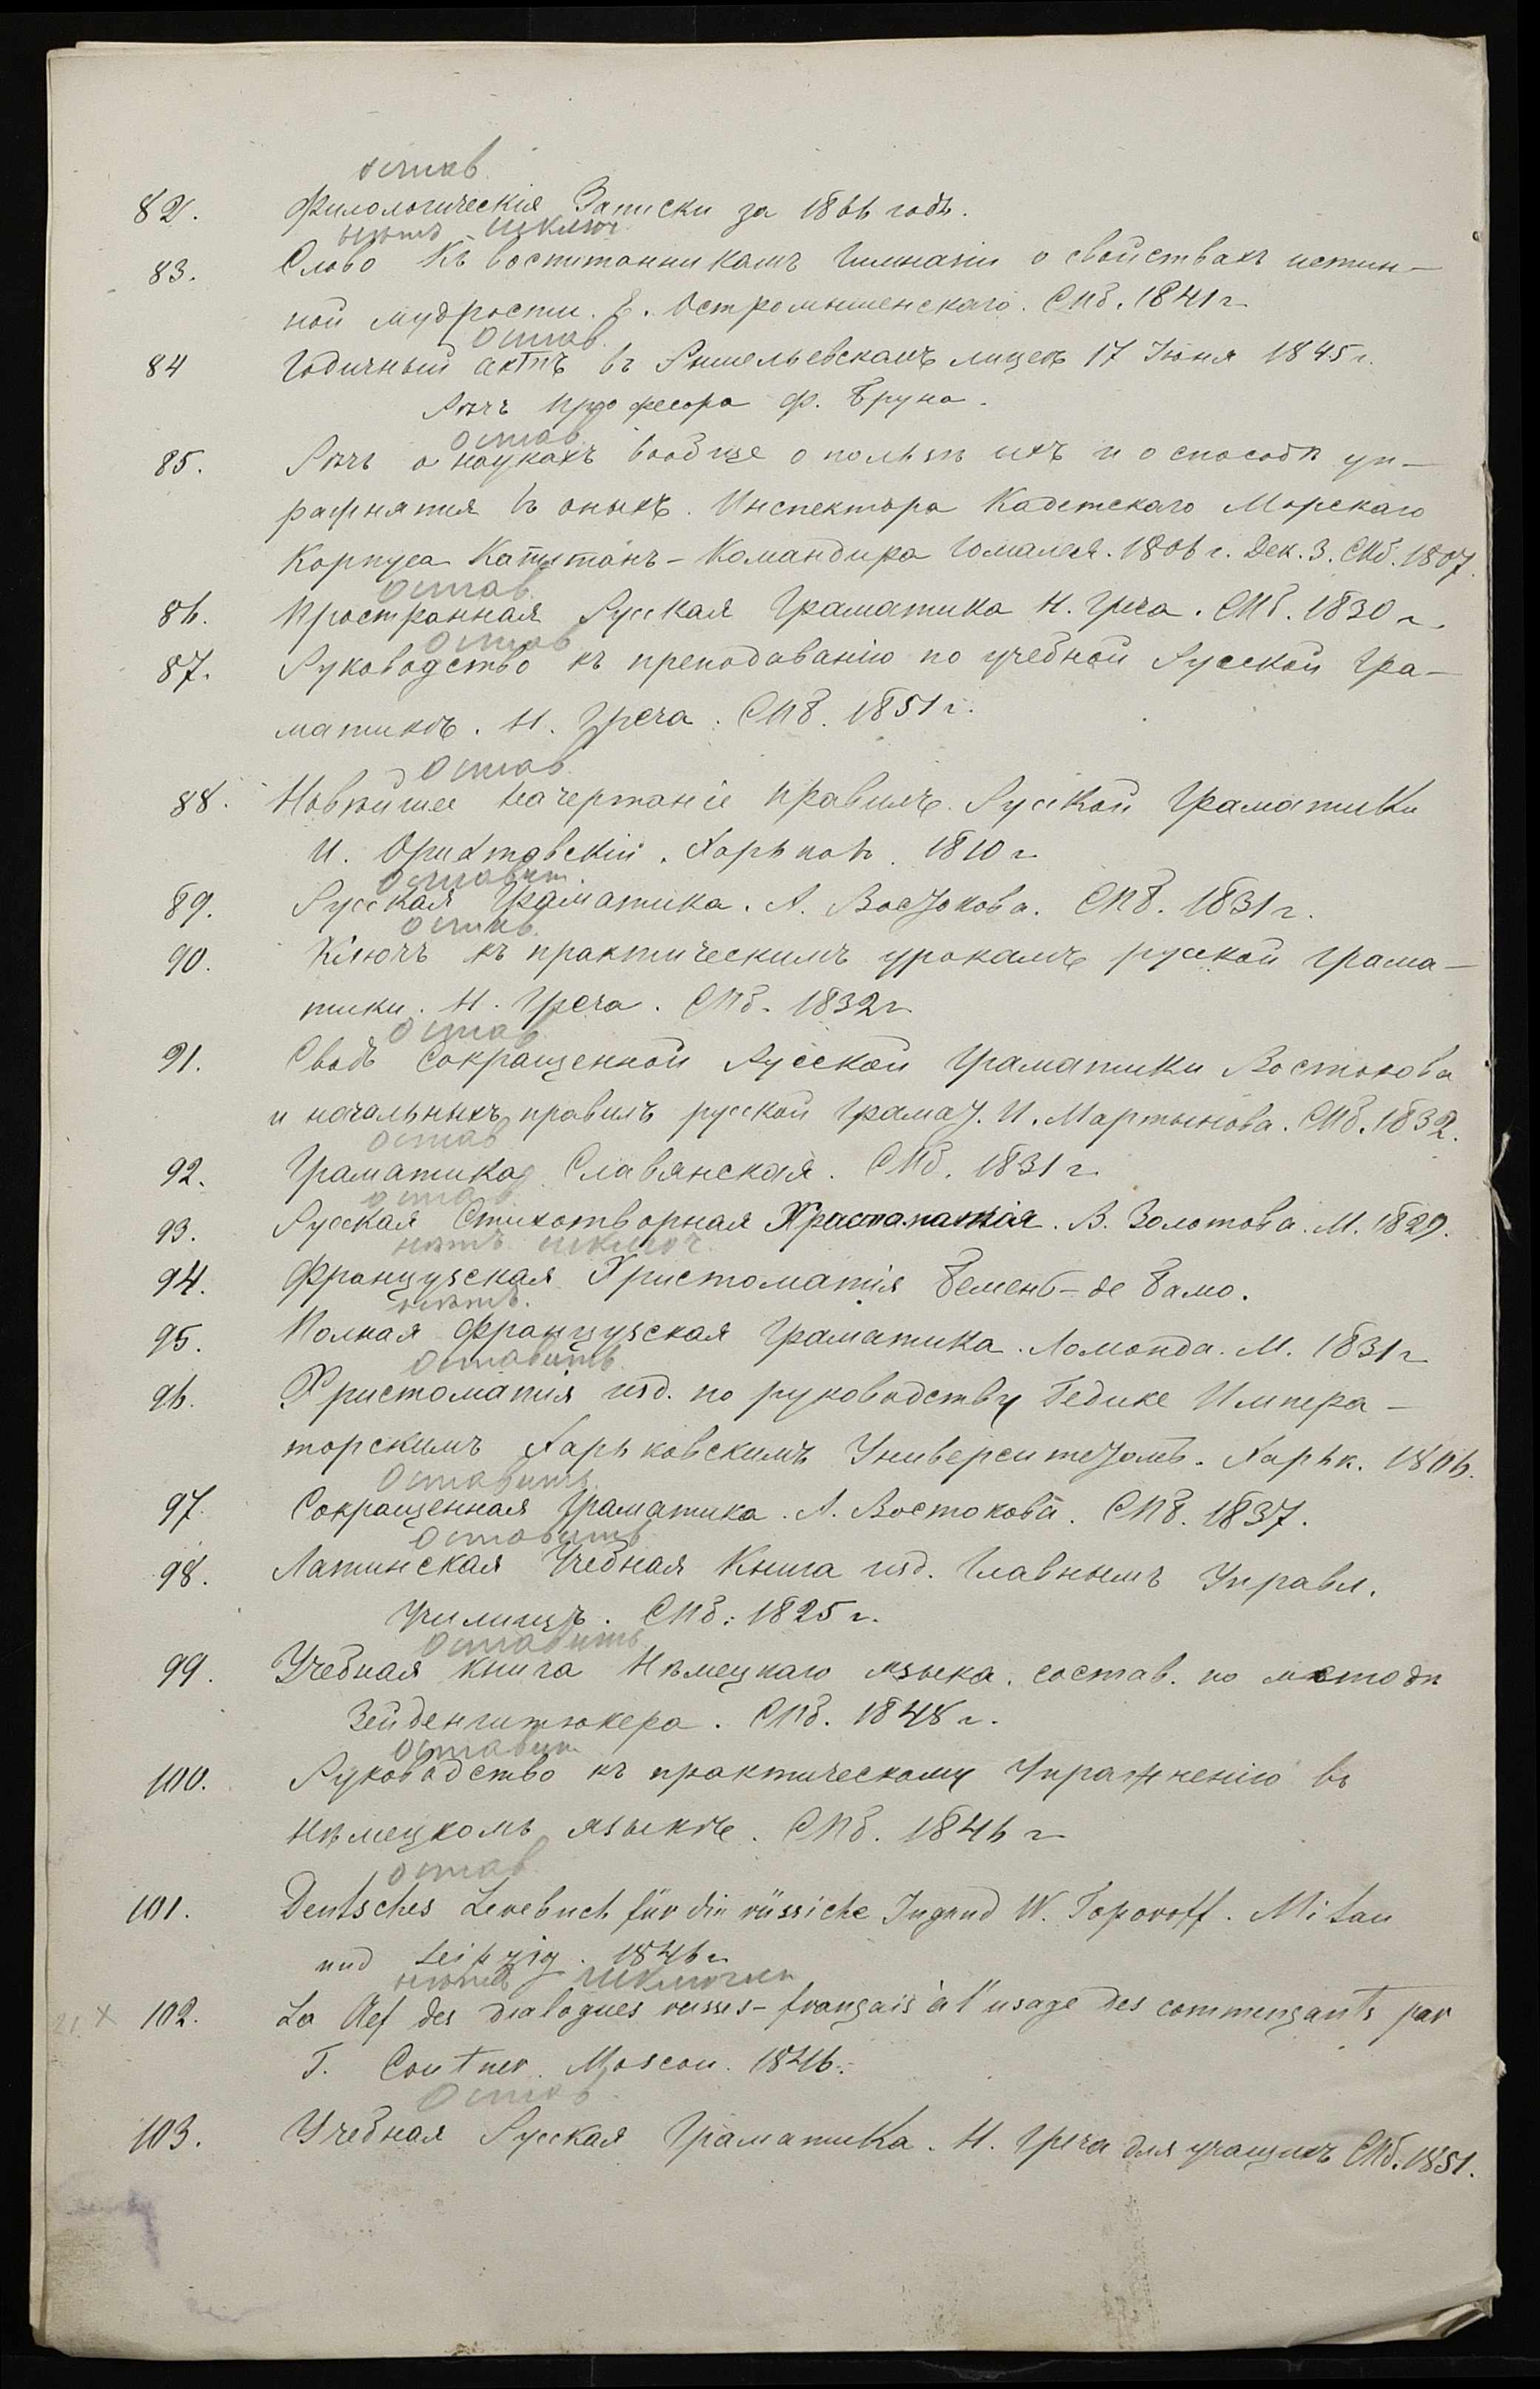 остав.
82. Филологическія Записки за 1866 годъ.
нѣтъ исключ.
83. Слово къ воспитанникамъ Гимназіи о свойствахъ истин-
ной мудрости. Е. Остромышенскаго. СПб. 1841 г.
Остав.
84 Годичный актъ въ Ришельевскомъ лицеѣ 17 Іюня 1845 г.
Рѣчь професора Ф. Бруна.
остав.
85. Рѣчь о наукахъ вообще о пользѣ ихъ и о способѣ уп-
ражнятся въ оныхъ. Инспектора Кадетскаго Морскаго
Корпуса Капитанъ-Командира Гомалея. 1806 г. Дек. 3. СПб. 1807.
Остав.
86. Пространная Руская Граматика Н. Греча. СПб. 1830 г.
Остав
87. Руководство къ преподаванію по учебной Русской Гра-
матикѣ. Н. Греча. СПб. 1851 г.
Остав.
88. Новѣйшее начертаніе правилъ Руской Граматики
И. Орнатовскій. Харьковъ. 1810 г.
Оставит.
89. Русская Граматика. А. Востокова. СПб. 1831 г.
Остав.
90. Ключъ къ практическимъ урокамъ русской грама-
тики. Н. Греча. СПб. 1832 г.
Остав.
91. Сводъ Сокращенной Русской Граматики Востокова
и начальныхъ правилъ русской Грамат. И. Мартынова. СПб. 1832.
Остав
92. Граматика Славянская. СПб. 1831 г.
остав.
93. Русская Стихотворная Христоматія. В. Золотова. М. 1829.
нѣтъ исключ.
94. Французская Христоматія де Бамо.
нѣтъ.
95. Полная Французская Граматика. Ломонда. М. 1831 г.
Оставить.
96. Христоматія изд. по руководству Гедике Импера-
торскимъ Харьковскимъ Университетомъ. Харьк. 1806.
Оставить.
97. Сокращенная Граматика. А. Востокова. СПб. 1837.
Оставить
98. Латинская Учебная Книга изд. Главнымъ Управл.
Училищъ. СПб. 1825 г.
Оставить
99. Учебная книга Нѣмецкаго языка. состав. по методѣ
Зейденштюкера. СПб. 1848 г.
Оставит
100. Руководство къ практическому Упражненію въ
Нѣмецкомъ языкѣ. СПб. 1846 г.
Остав.
101. Deutsches Lesebuch für die rüssiche Jugend W. Toporoff. Mitau
und Leipzig. 1846 г.
нѣтъ исключен
21. × 102. La Clef des dialogues russes-français à l'usage des commençants par
T. Coutner. Moscou. 1846.
Остав.
103. Учебная Русская Граматика. Н. Греча для учащихъ СПб. 1851.